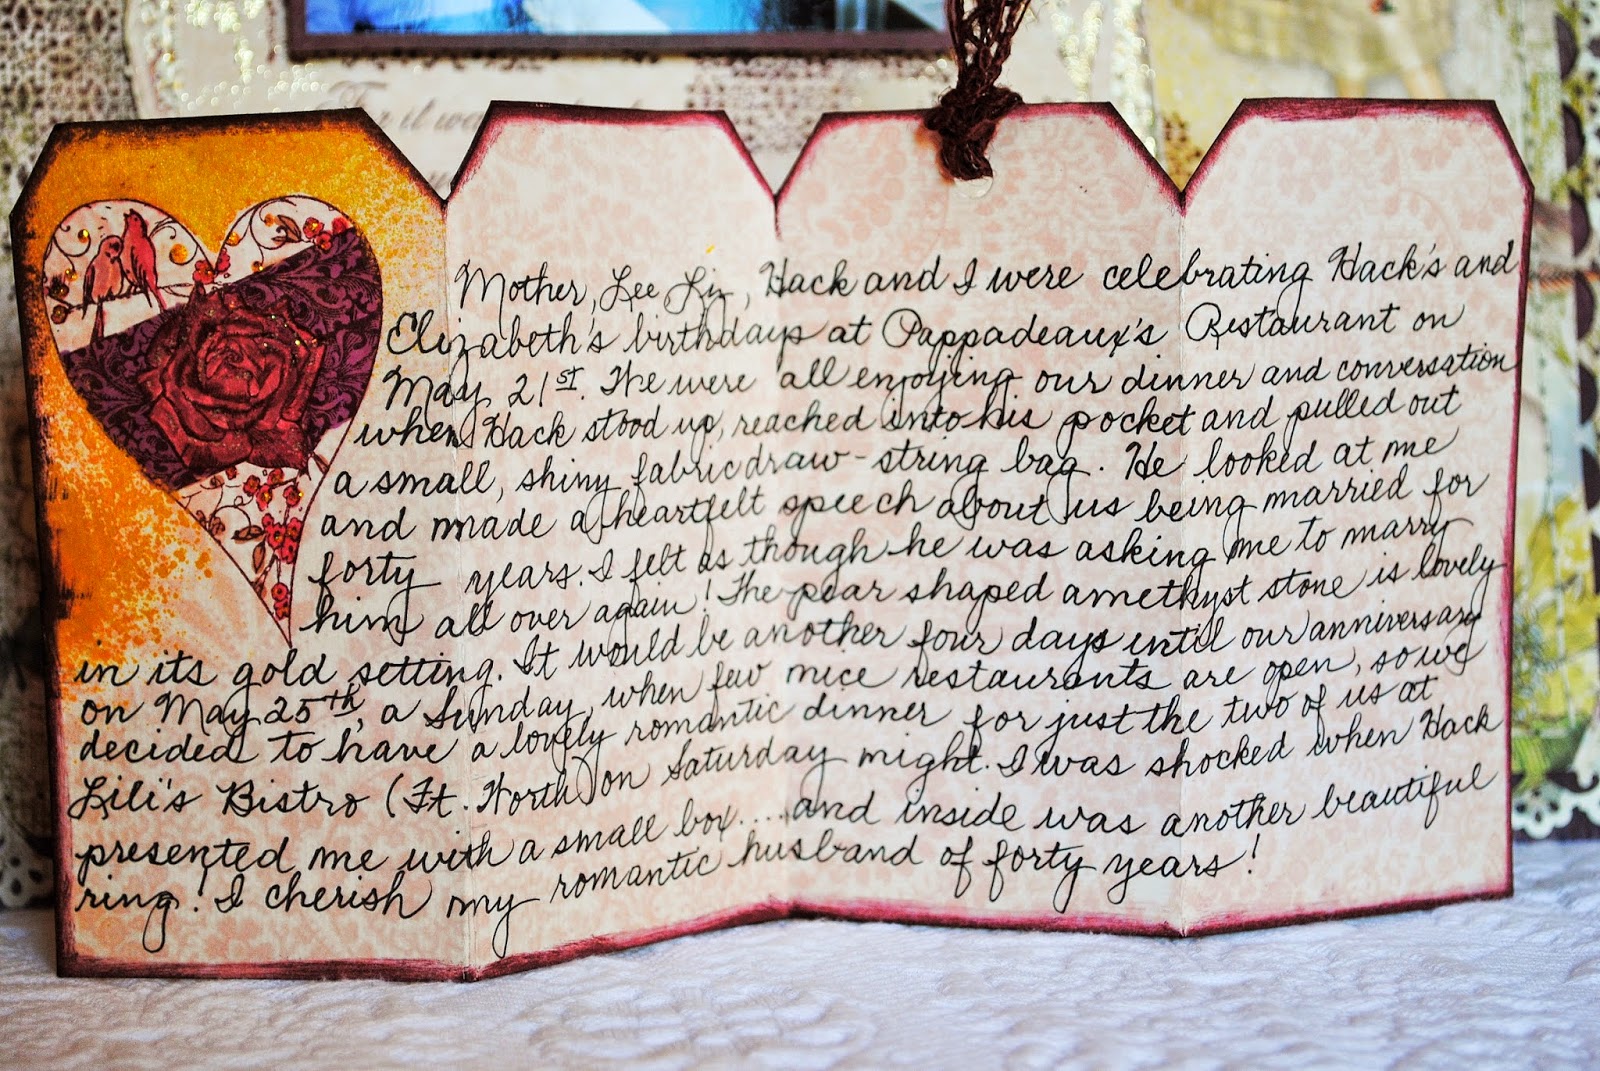 For it was
Mother, Lee Liz, Hack and I were celebrating Hack's and
Elizabeth's birthdays at Pappadeaux's Restaurant on
May 21st. We were all enjoying our dinner and conversation
when Hack stood up, reached into his pocket and pulled out
a small, shiny fabric draw-string bag. He looked at me
and made a heartfelt speech about us being married for
forty years. I felt as though he was asking me to marry
him all over again! The pear shaped amethyst stone is lovely
in its gold setting. It would be another four days until our anniversary
on May 25th, a Sunday, when few nice restaurants are open, so we
decided to have a lovely romantic dinner for just the two of us at
Lili's Bistro (Ft. Worth) on Saturday night. I was shocked when Hack
presented me with a small box....and inside was another beautiful
ring! I cherish my romantic husband of forty years!